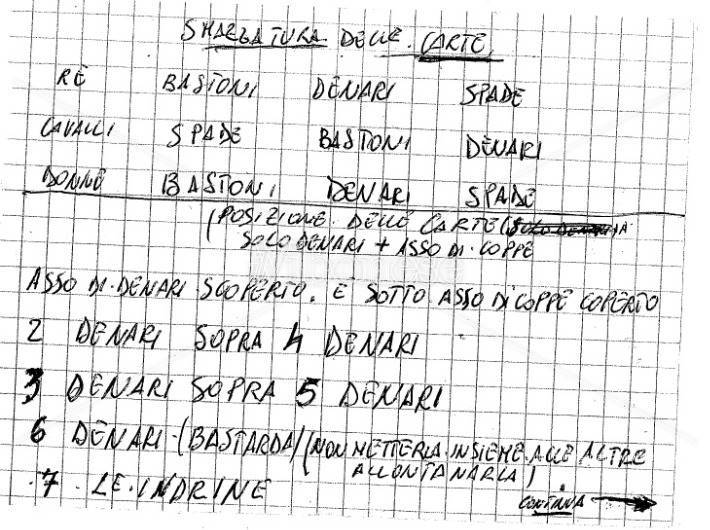 SMAZZATURA DELLE CARTE
RE BASTONI DENARI SPADE
CAVALLI SPADE BASTONI DENARI
DONNE BASTONI DENARI SPADE
(POSIZIONE DELLE CARTE(
SOLO DENARI + ASSO DI COPPE
ASSO DI DENARI SCOPERTO. E SOTTO ASSO DI COPPE COPERTO
2 DENARI SOPRA 4 DENARI
3 DENARI SOPRA 5 DENARI
6 DENARI-(BASTARDA)(NON METTERLA INSIEME ALLE ALTRE
ALLONTANARLA)
.7. LE. INDRINE
CONTINUA →